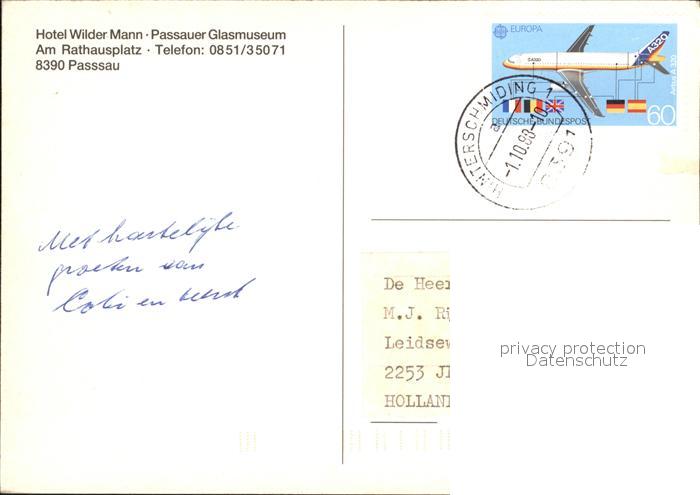 Hotel Wilder Mann · Passauer Glasmuseum
Am Rathausplatz · Telefon: 0851/35071
8390 Passsau
EUROPA
A320
Airbus A 320
DEUTSCHE BUNDESPOST
60
HINTERSCHMIDING 1
a
-1.10.88-10
8391
Met hartelijke
groeten van
Cobi en
De Heer
M.J. Ri
Leidsew
2253 J
HOLLAND
privacy protection
Datenschutz